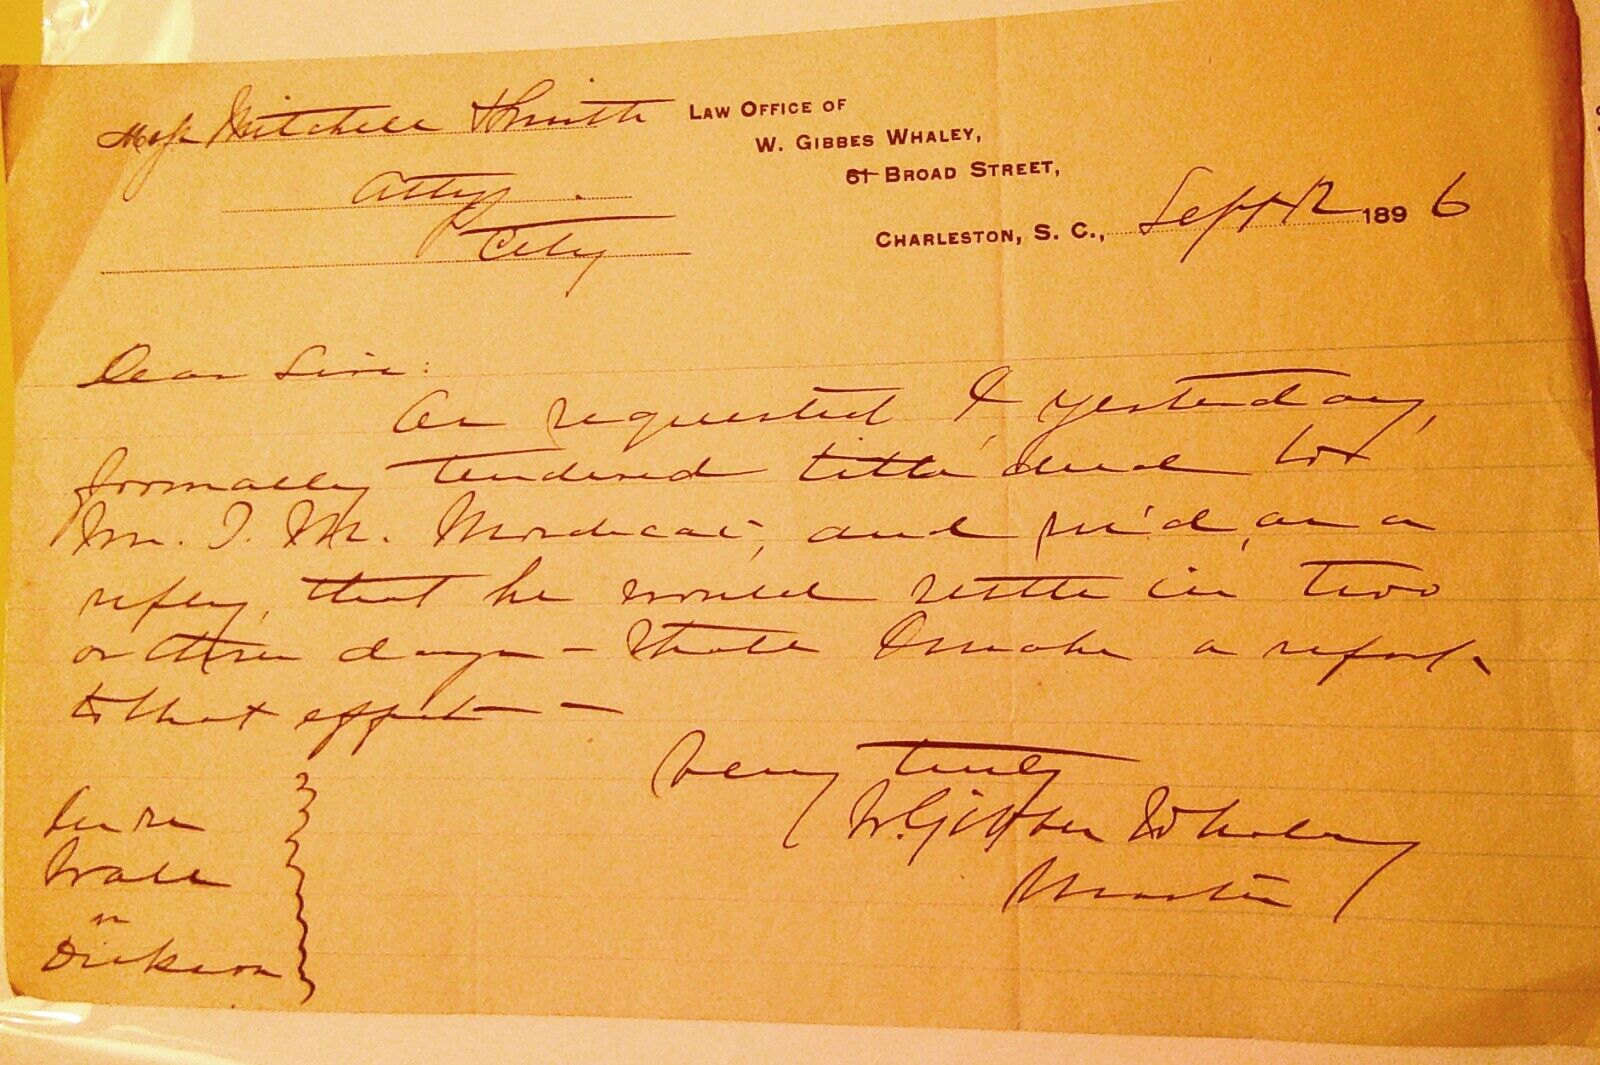 Mess Mitchell & Smith
Attys.
City
LAW OFFICE OF
W. GIBBES WHALEY,
61 BROAD STREET,
CHARLESTON, S. C., Sept 12 1896
Dear Sirs:
As requested I, yesterday,
formally tendered title deed to
Mr. T. M. Mordecai, and rec'd, as a
reply, that he would settle in two
or three days — Shall I make a report
to that effect —
Very truly
W. Gibbes Whaley
Master
In re
Wall
vs
Dickson